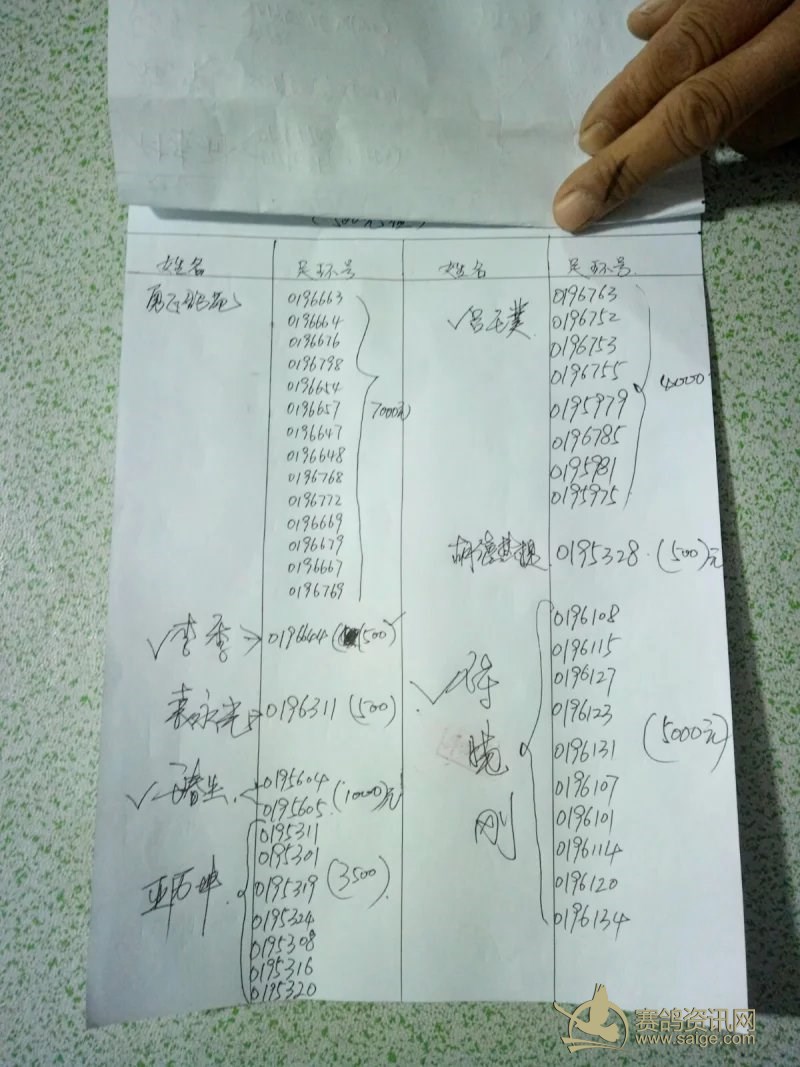 (500元组)
姓名 足环号 姓名 足环号
0196663
0196664
0196676
0196798
0196654
0196657 7000元
0196647
0196648
0196768
0196772
0196669
0196679
0196667
0196769
√李季 0196644 (500)
袁永光 0196311 (500)
0195604
0195605 (1000)元
0195311
0195301
0195319 (3500)
0195324
0195308
0195316
0195320
√吕玉
0196763
0196752
0196753
0196755 4000
0195979
0196785
0195981
0195975
胡德 0195328 (500)元
√陈晓刚
0196108
0196115
0196127
0196123
0196131 (5000元)
0196107
0196101
0196114
0196120
0196134
赛鸽资讯网
www.saige.com